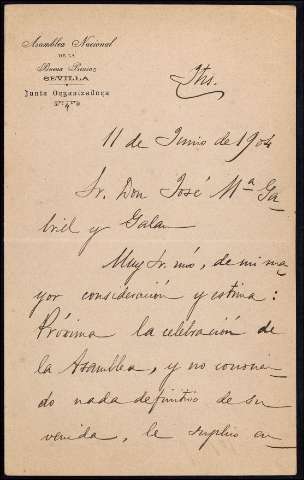 Asamblea Nacional
DE LA
Buena Prensa
SEVILLA
Junta Organizadora
Jhs.
11 de Junio de 1904
Sr. Don José Mª Ga-
briel y Galan
Muy Sr. mío, de mi ma-
yor consideración y estima:
Próxima la celebración de
la Asamblea, y no conocien-
do nada definitivo de su
venida, le suplico en